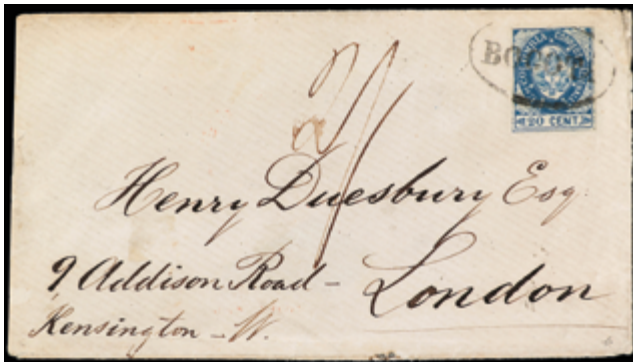 BOGOTA
20 CENT.
2/
Henry Duesbury Esq
9 Addison Road - London
Kensington - W.